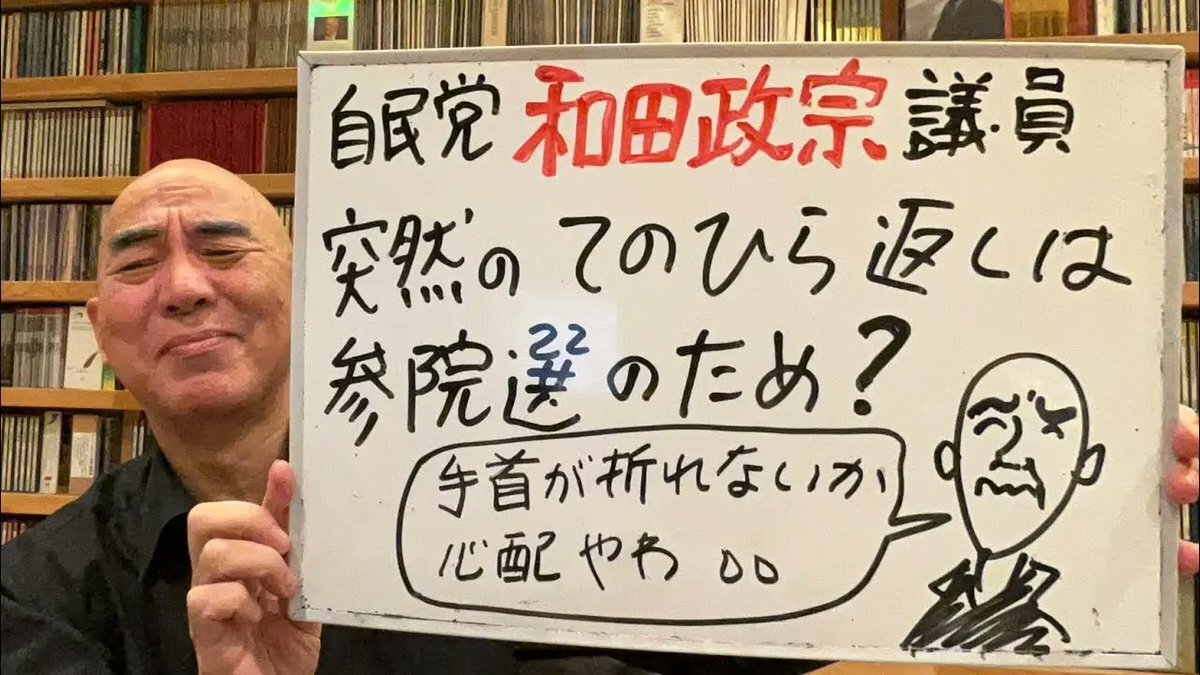 自民党 和田政宗 議員
突然の てのひら返しは
参院選22のため?
手首が折れないか
心配やわ